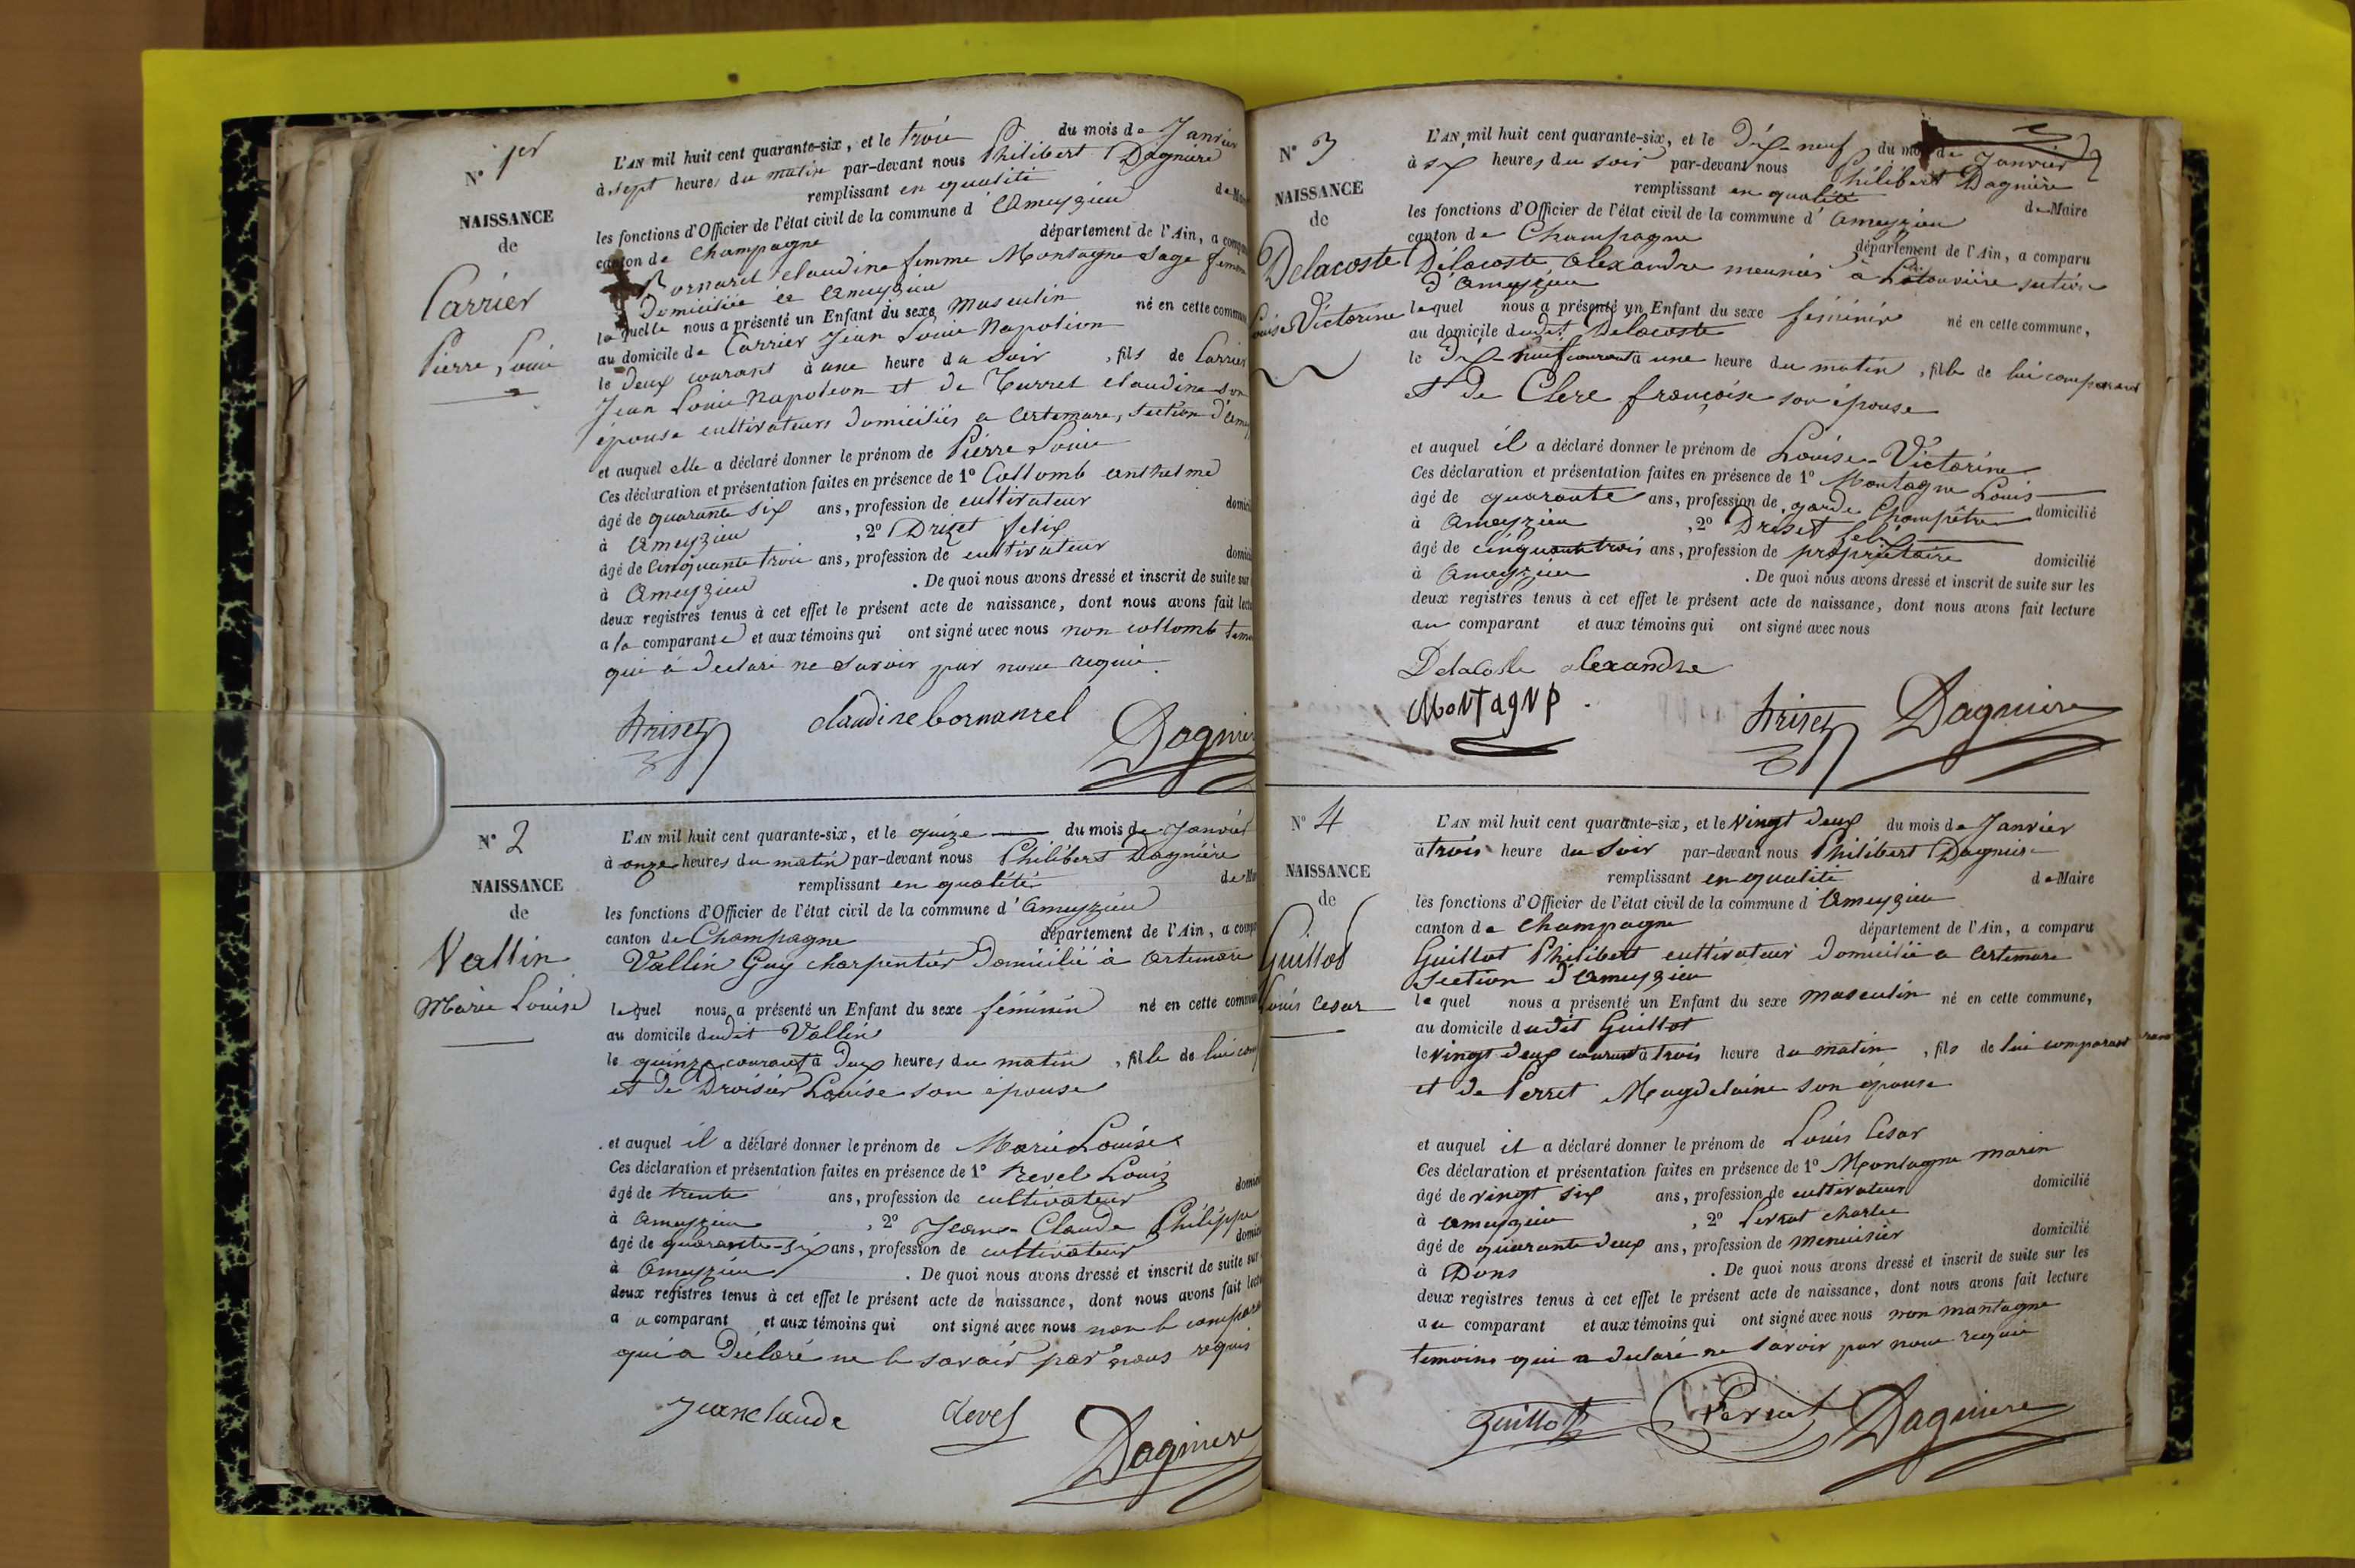 N° 1er
NAISSANCE
de
Carrier
Pierre Louis
L'AN mil huit cent quarante-six, et le trois du mois de Janvier
à sept heures du matin par-devant nous Philibert Dagnière
remplissant en qualité de Maire
les fonctions d'Officier de l'état civil de la commune d'Ameyzieu
canton de Champagne département de l'Ain, a comparu
Bornarel claudine femme Montagne Sage femme
domiciliée à Ameyzieu
laquelle nous a présenté un Enfant du sexe Masculin né en cette commune
au domicile de Carrier Jean Louis Napoléon
le deux courant à une heure du Soir, fils de Carrier
Jean Louis Napoleon et de Turret claudine son
épouse cultivateurs domiciliés a Artemare, Section d'Amey
et auquel elle a déclaré donner le prénom de Pierre Louis
Ces déclaration et présentation faites en présence de 1° Collomb anthelme
âgé de quarante six ans, profession de cultivateur domicilié
à Ameyzieu, 2° Drizet felix
âgé de Cinquante trois ans, profession de cultivateur domicilié
à Ameyzieu. De quoi nous avons dressé et inscrit de suite sur
deux registres tenus à cet effet le présent acte de naissance, dont nous avons fait lecture
a la comparante et aux témoins qui ont signé avec nous non collomb temoin
qui à declaré ne Savoir par nous requis.
Driset claudine bornarel Dagnière
N° 2
NAISSANCE
de
Vallin
Marie Louise
L'AN mil huit cent quarante-six, et le quize du mois de Janvier
à onze heures du matin par-devant nous Philibert Dagnière
remplissant en qualité de Maire
les fonctions d'Officier de l'état civil de la commune d'Ameyzieu
canton de Champagne département de l'Ain, a comparu
Vallin Guy charpentier domicilié à Artemare
lequel nous a présenté un Enfant du sexe féminin né en cette commune
au domicile dudit Vallin
le quinze courant à deux heures du matin, fille de lui comp
et de Droisier Louise son épouse
et auquel il a déclaré donner le prénom de Marie Louise
Ces déclaration et présentation faites en présence de 1° Revel Louis
âgé de trente ans, profession de cultivateur domicilié
à Ameyzieu, 2° Jean-Claude Philippe
âgé de quarante-six ans, profession de cultivateur domicilié
à Ameyzieu. De quoi nous avons dressé et inscrit de suite sur
deux registres tenus à cet effet le présent acte de naissance, dont nous avons fait lecture
a u comparant et aux témoins qui ont signé avec nous non le comparant
qui a déclaré ne le savoir par nous requis
Jeanclaude Revel Dagniere
N° 3
NAISSANCE
de
Delacoste
Louise Victorine
L'AN mil huit cent quarante-six, et le dix-neuf du mois de Janvier
à six heures du soir par-devant nous Philibert Dagnière
remplissant en qualité de Maire
les fonctions d'Officier de l'état civil de la commune d'Ameyzieu
canton de Champagne département de l'Ain, a comparu
Delacoste Alexandre meunier a section
d'Ameyzieu
lequel nous a présenté un Enfant du sexe féminin né en cette commune,
au domicile dudit Delacoste
le dix-neuf courant à une heure du matin, fille de lui comparant
et de Clerc françoise son épouse
et auquel il a déclaré donner le prénom de Louise-Victorine
Ces déclaration et présentation faites en présence de 1° Montagne Louis
âgé de quarante ans, profession de garde Champêtre domicilié
à Ameyzieu, 2° Driset felix
âgé de cinquante trois ans, profession de propriétaire domicilié
à Ameyzieu. De quoi nous avons dressé et inscrit de suite sur les
deux registres tenus à cet effet le présent acte de naissance, dont nous avons fait lecture
au comparant et aux témoins qui ont signé avec nous
Delacoste alexandre
Montagne Driset Dagniere
N° 4
NAISSANCE
de
Guillot
Louis Cesar
L'AN mil huit cent quarante-six, et le Vingt deux du mois de Janvier
à trois heure du Soir par-devant nous Philibert Dagniere
remplissant en qualité de Maire
les fonctions d'Officier de l'état civil de la commune d'Ameyzieu
canton de Champagne département de l'Ain, a comparu
Guillot Philibert cultivateur domicilié a Artemare
Section d'Ameyzieu
lequel nous a présenté un Enfant du sexe masculin né en cette commune,
au domicile dudit Guillot
le Vingt deux courant à trois heure du matin, fils de lui comparant
et de Perret Magdelaine son épouse
et auquel il a déclaré donner le prénom de Louis Cesar
Ces déclaration et présentation faites en présence de 1° Montagne marin
âgé de vingt six ans, profession de cultivateur domicilié
à Ameyzieu, 2° charles
âgé de quarante deux ans, profession de menuisier domicilié
à Dons. De quoi nous avons dressé et inscrit de suite sur les
deux registres tenus à cet effet le présent acte de naissance, dont nous avons fait lecture
au comparant et aux témoins qui ont signé avec nous non montagne
temoins qui a declaré ne Savoir par nous requis
Guillot Dagniere